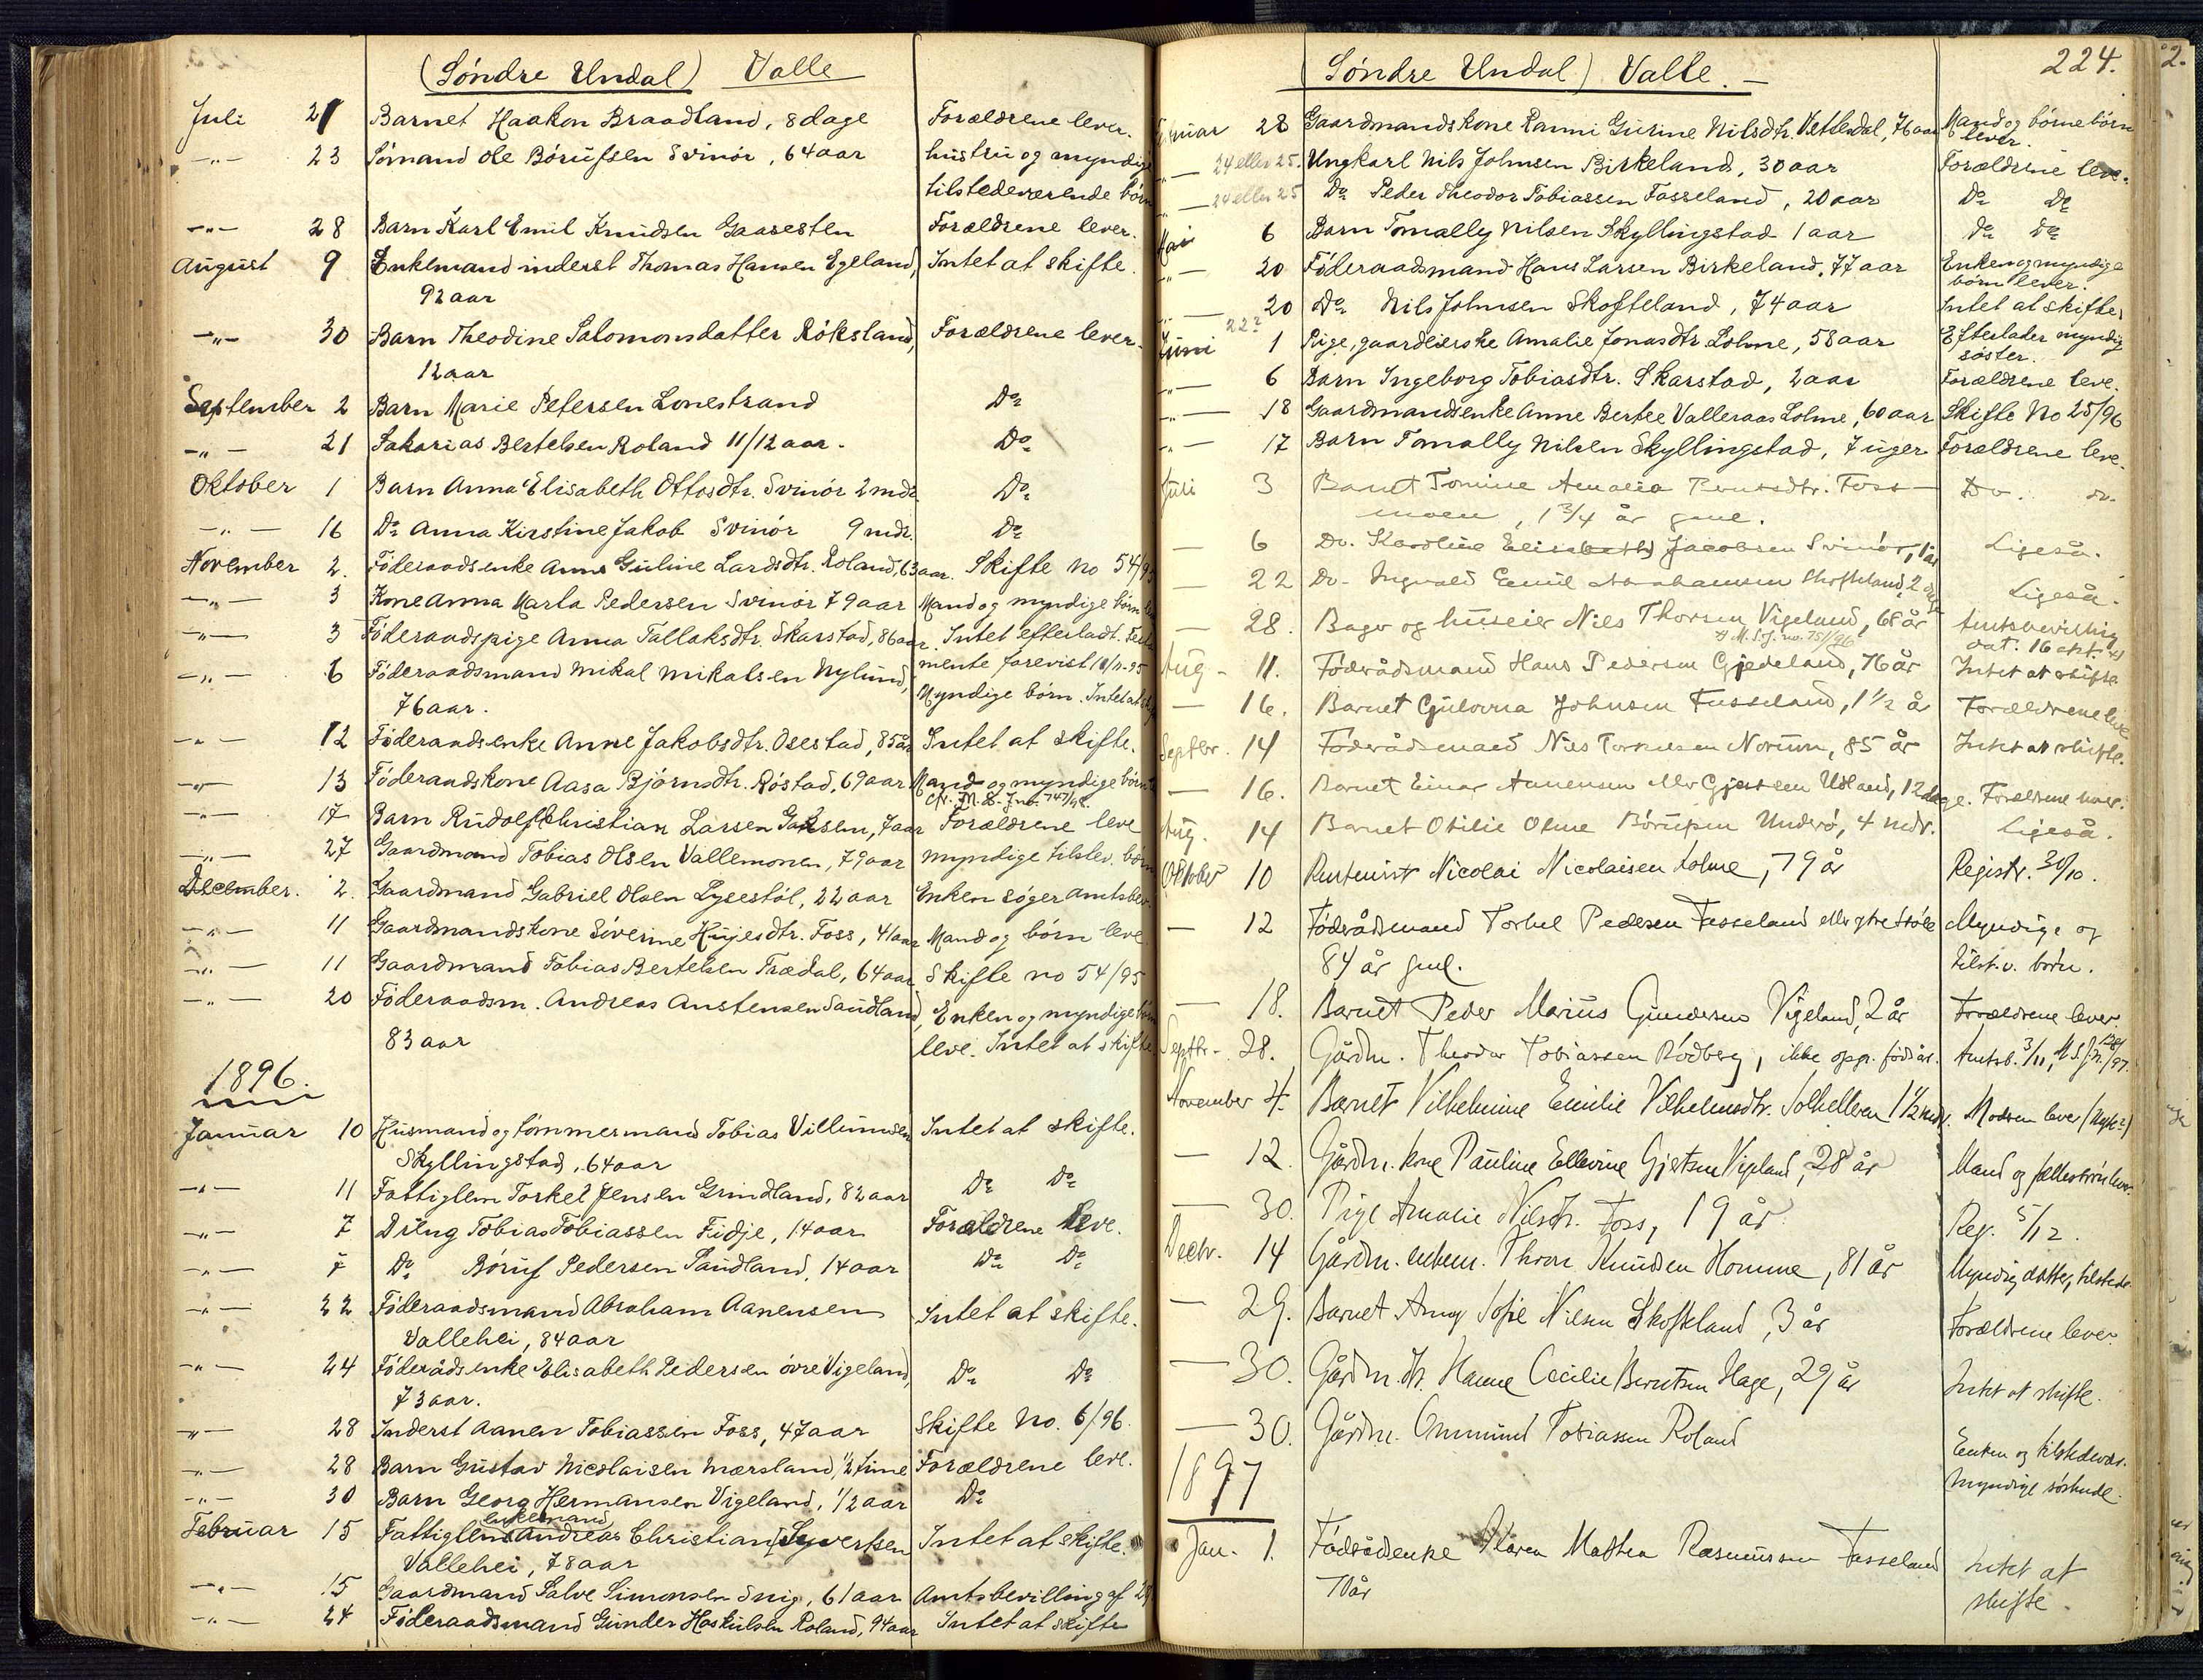 (Söndre Undal) Valle
Juli 21 Barnet Haakon Braadland, 8 dage Forældrene lever.
-"- 23 Sömand Ole Börufsen Svinör, 64 aar hustru og myndige
tilstedeværende börn
-"- 28 Barn Karl Emil Knudsen Gaasesten Forældrene lever.
August 9 Enkemand inderst Thomas Hansen Egeland, Intet at skifte.
92 aar
-"- 30 Barn Theodine Salomonsdatter Röksland, Forældrene lever.
12 aar
September 2 Barn Marie Petersen Lonestrand Do
-"- 21 Sakarias Bertelsen Roland 11/12 aar. Do
Oktober 1 Barn Anna Elisabeth Ottosdtr. Svinör 2 mdr Do
-"- 16 Do Anna Kirstine Jakob Svinör 9 mdr. Do
November 2. Föderaadsenke Anne Guline Lardsdtr. Roland, 63 aar. Skifte no 54/95
-"- 3 Kone Anna Marta Pedersen Svinör 79 aar Mand og myndige börn
-"- 3 Föderaadspige Anna Tallaksdtr. Skarstad, 86 aar. Intet efterladt. Testa
mente forevist 18/11-95
-"- 6 Föderaadsmand Mikal Mikalsen Nylund, Myndige börn. Intet at
76 aar.
-"- 12 Föderaadsenke Anne Jakobsdtr. Osestad, 85 år Intet at skifte.
-"- 13 Föderaadskone Aasa Björnsdtr. Röstad, 69 aar Mand og myndige börn
cfr. M. S. J no. 747/98.
-"- 17 Barn Rudolf Christian Larsen, 7 aar Forældrene leve
-"- 27 Gaardmand Tobias Olsen Vallemonen, 79 aar myndige tilstev. börn
December. 2. Gaardmand Gabriel Olsen Lysestöl, 22 aar Enken söger amtsbev.
-"- 11 Gaardmandskone Séverine Hujesdtr. Foss, 41 aar Mand og börn leve
-"- 11 Gaardmand Tobias Bertelsen Trædal, 64 aar Skifte no 54/95
-"- 20 Föderaadsm. Andreas Austensen Saudland, Enken og myndige börn
83 aar leve. Intet at skifte
1896.
Januar 10 Husmand og tömmermand Tobias Villumsen Intet at skifte.
Skyllingstad, 64 aar
-"- 11 Fattiglem Torkel Jensen Grindland, 82 aar Do Do
-"- 7 Dreng Tobias Tobiassen Fidje, 14 aar Forældrene leve.
-"- 7 Do Böruf Pedersen Saudland, 14 aar Do Do
-"- 22 Föderaadsmand Abraham Aanensen Intet at skifte.
Vallehei, 84 aar
-"- 24 Föderådsenke Elisabeth Pedersen övre Vigeland, Do Do
73 aar.
-"- 28 Inderst Aanen Tobiassen Foss, 47 aar Skifte No. 6/96.
-"- 28 Barn Gustav Nicolaisen Mærsland, 1/2 time Forældrene leve.
-"- 30 Barn Georg Hermansen Vigeland, 1/2 aar Do
enkemand
Februar 15 Fattiglem Andreas Christian Syvertsen Intet at skifte.
Vallehei, 78 aar
-"- 15 Gaardmand Salve Simonsen Snig, 61 aar Amtsbevilling af 28
-"- 24 Föderaadsmand Gunder Haskulsen Roland, 94 aar Intet at skifte
224.
(Söndre Undal) Valle. -
Februar 28 Gaardmandskone Ranni Gurine Nilsdtr. Vetledal, 76 aar Mand og börnebörn
lever.
-"- 24 eller 25. Ungkarl Nils Johnsen Birkeland, 30 aar Forældrene leve.
-"- 24 eller 25 Do Peder Theodor Tobiassen Fasseland, 20 aar Do Do
Mai 6 Barn Tomally Nilsen Skyllingstad 1 aar do do
-"- 20 Föderaadsmand Hans Larsen Birkeland, 77 aar Enken og myndige
börn lever.
-"- 20 Do Nils Johnsen Skofteland, 74 aar Intet at skifte
22?
Juni 1 Pige, gaardeierske Amalie Jonasdtr Lohne, 58 aar Efterlader myndig
söster.
-"- 6 Barn Ingeborg Tobiasdtr. Skarstad, 2 aar Forældrene leve.
-"- 18 Gaardmandsenke Anne Bertee Valleraas Lohne, 60 aar Skifte No 25/96
-"- 17 Barn Tomally Nilsen Skyllingstad, 7 uger Forældrene leve.
Juli 3 Barnet Tomine Amalia Berntsdtr. Foss- Do. do.
moen, 1 3/4 år gml.
- 6 Do. Karoline Elisabeth Jacobsen Svinör, 1 år Ligeså.
- 22 Do- Ingvald Emil Abrahamsen Skofteland, 2 dage Ligeså.
- 28. Bager og huseier Niels Thorsen Vigeland, 68 år Amtsbevilling
x) M. S. J. no. 751/96 dat. 16 okt. x)
Aug- 11. Föderådsmand Hans Pedersen Gjedeland, 76 år Intet at skifte
- 16. Barnet Gulovna Johnsen Fasseland, 1 1/2 år Forældrene leve
Septbr. 14 Föderådsmand Nils Torkelsen Norum, 85 år Intet at skifte.
- 16. Barnet Einar Aanensen eller Gjertsen Udland, 12 dage. Forældrene lever.
Aug. 14 Barnet Otilie Oline Börufsen Underö, 4 mdr. Ligeså.
Oktober 10 Rentenist Nicolai Nicolaisen Lohne, 79 år Registr. 30/10.
- 12 Föderådsmand Torkel Pedersen Fasseland eller ytre Stöle Myndige og
84 år gml. tilst.v. börn.
- 18. Barnet Peder Marius Gundersen Vigeland, 2 år Forældrene lever
Septbr- 28. Gårdm. Theodor Tobiassen Rödberg, ikke opg. födsår. Amtsb. 3/11, M. S. J. n. /97.
November 4. Barnet Vilhelmine Emilie Vilhelmsdtr. Solhelleren 1 1/2 mdr. Modren lever
- 12. Gårdm. kone Pauline Ellevine Gjertsen Vigeland, 28 år Mand og fællesbörn lever.
- 30. Pige Amalie Nilsdtr. Foss, 19 år Reg. 5/12.
Decbr. 14 Gårdm. enkem. Thron Knudsen Homme, 81 år Myndig datter, tilstede
- 29. Barnet Anny Sofie Nilsen Skofteland, 3 år Forældrene lever
- 30. Gårdm. dtr. Hanne Cecilie Berntsen Hage, 29 år Intet at skifte.
- 30. Gårdm. Ommund Tobiassen Roland Enken og tilstedevær.
myndige söskende.
1897
Jan. 1. Föderådsenke Maren Mathea Rasmussen Fasseland Intet at
70 år skifte.